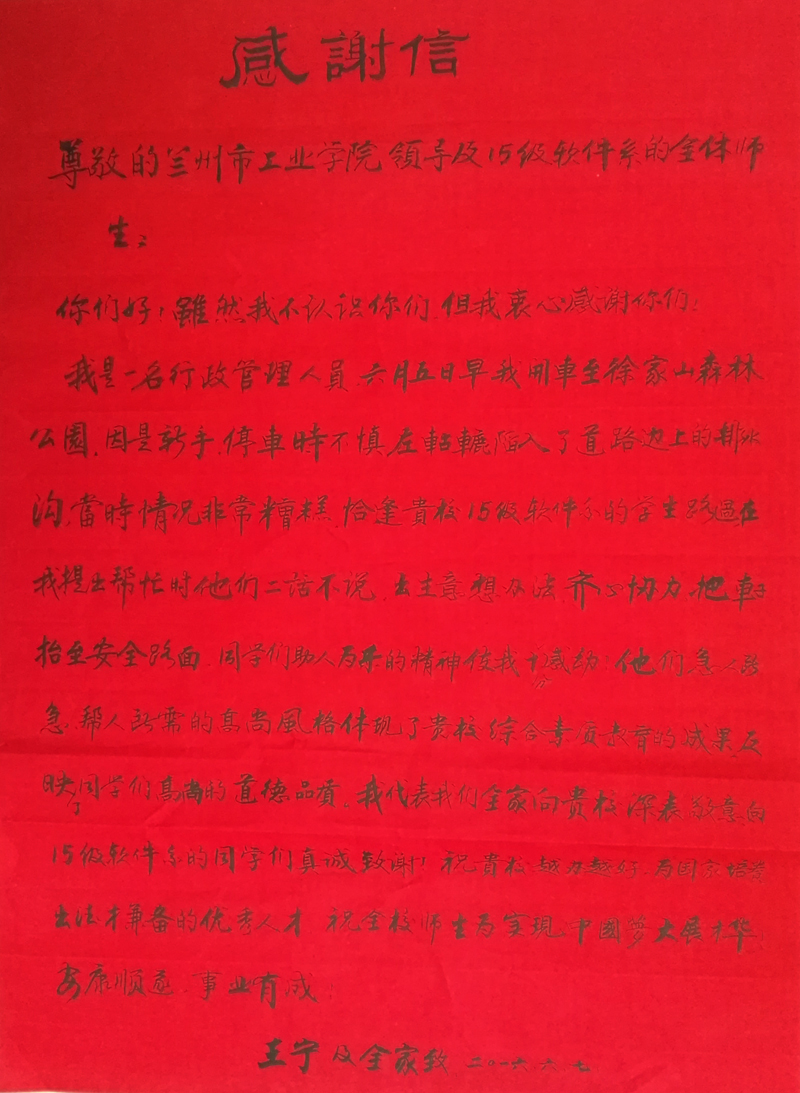 感謝信
尊敬的兰州市工业学院領导及15级软件系的全体师
生:
你们好!雖然我不认识你们,但我衷心感謝你们!
我是一名行政管理人員,六月五日早我開車至徐家山森林
公園,因是新手,停車時不慎左轱辘陷入了道路边上的排水
沟,當時情况非常糟糕,恰逢貴校15级软件系的学生路過在
我提出帮忙时他们二话不说,出主意想办法,齐心协力,把車子
抬至安全路面,同学们助人为乐的精神使我十分感动!他们急人所
急,帮人所需的高尚風格体现了贵校综合素质教育的成果,反
映了同学们高尚的道德品質。我代表我们全家向贵校深表敬意,向
15级软件系的同学们真诚致謝!祝貴校越办越好,为国家培养
出法才兼备的优秀人才,祝全校师生为实现中國梦大展才华,
安康顺遂,事业有成!
王宁及全家致 二〇一六.六.七